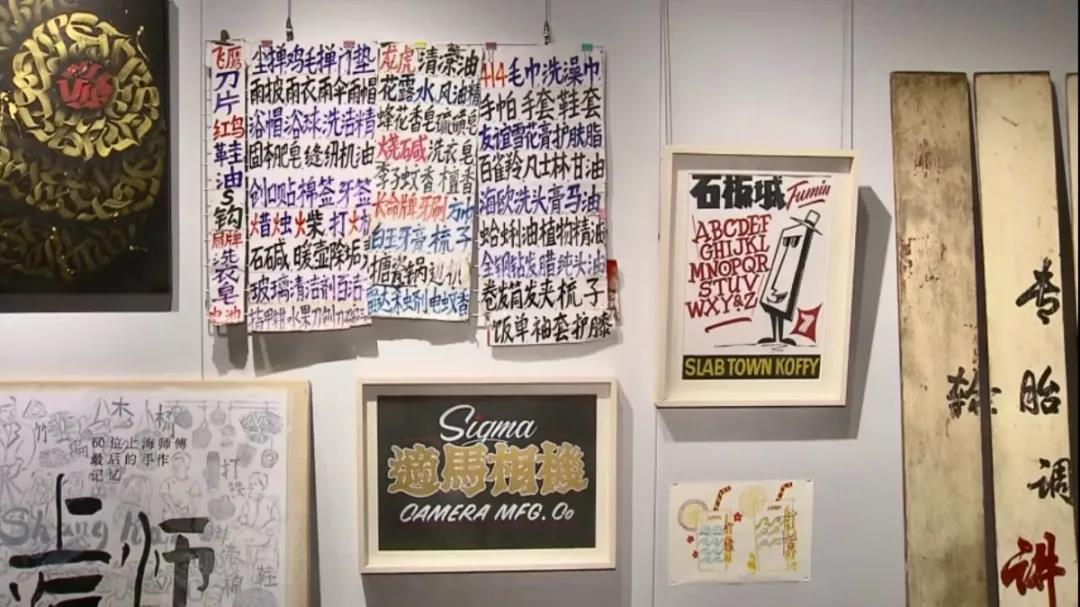 VIP
飞鹰
刀片
红鸟
鞋油
S钩
扇牌
皂
尘掸鸡毛掸门垫
雨披雨衣雨伞雨帽
浴帽浴球洗洁精
固本肥皂缝纫机油
创口贴棉签牙签
蜡烛火柴打火机
石碱暖壶除垢
玻璃清洁剂百洁
指甲钳水果刀
龙虎清凉油
花露水风油精
蜂花香皂硫磺皂
烧石碱洗衣皂
李子蚊香檀香
长命牌牙刷方巾
白玉牙膏梳子
搪瓷锅
雷达杀虫剂电蚊香
414毛巾洗澡巾
手帕手套鞋套
友谊雪花膏护肤脂
百雀羚凡士林甘油
海欧洗头膏马油
蛤蜊油植物精油
发腊纯头油
卷发筒发夹梳子
饭单袖套护膝
石板城 Fumin
ABCDEF
GHIJKL
MNOPQR
STUV
WXY&Z
SLAB TOWN KOFFY
Sigma
適馬相機
CAMERA MFG. Co
60位上海师傅
最后的手作
记忆
竹编
木桶
打铁
Shanghai
上海师
弹棉
鞋
轮
专胎调
讲